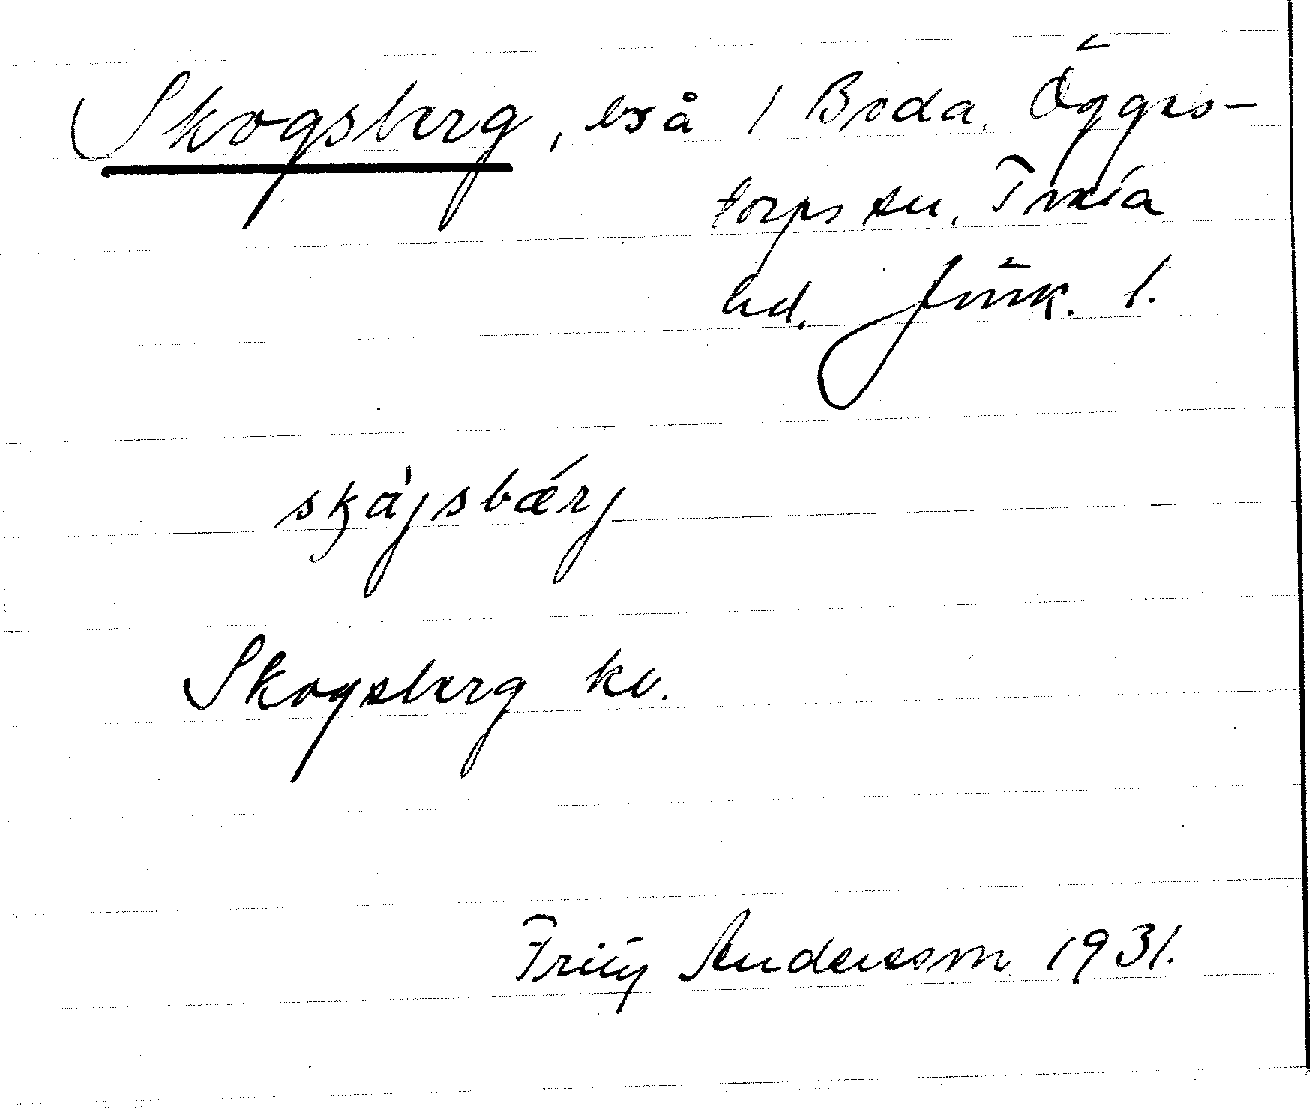 Skogsberg, lså / Boda, Öggès-
torps sn, Tveta
hd. Jönk. l.
skåjsbærj
Skogsberg kv.
Fritz Andersson 1931.